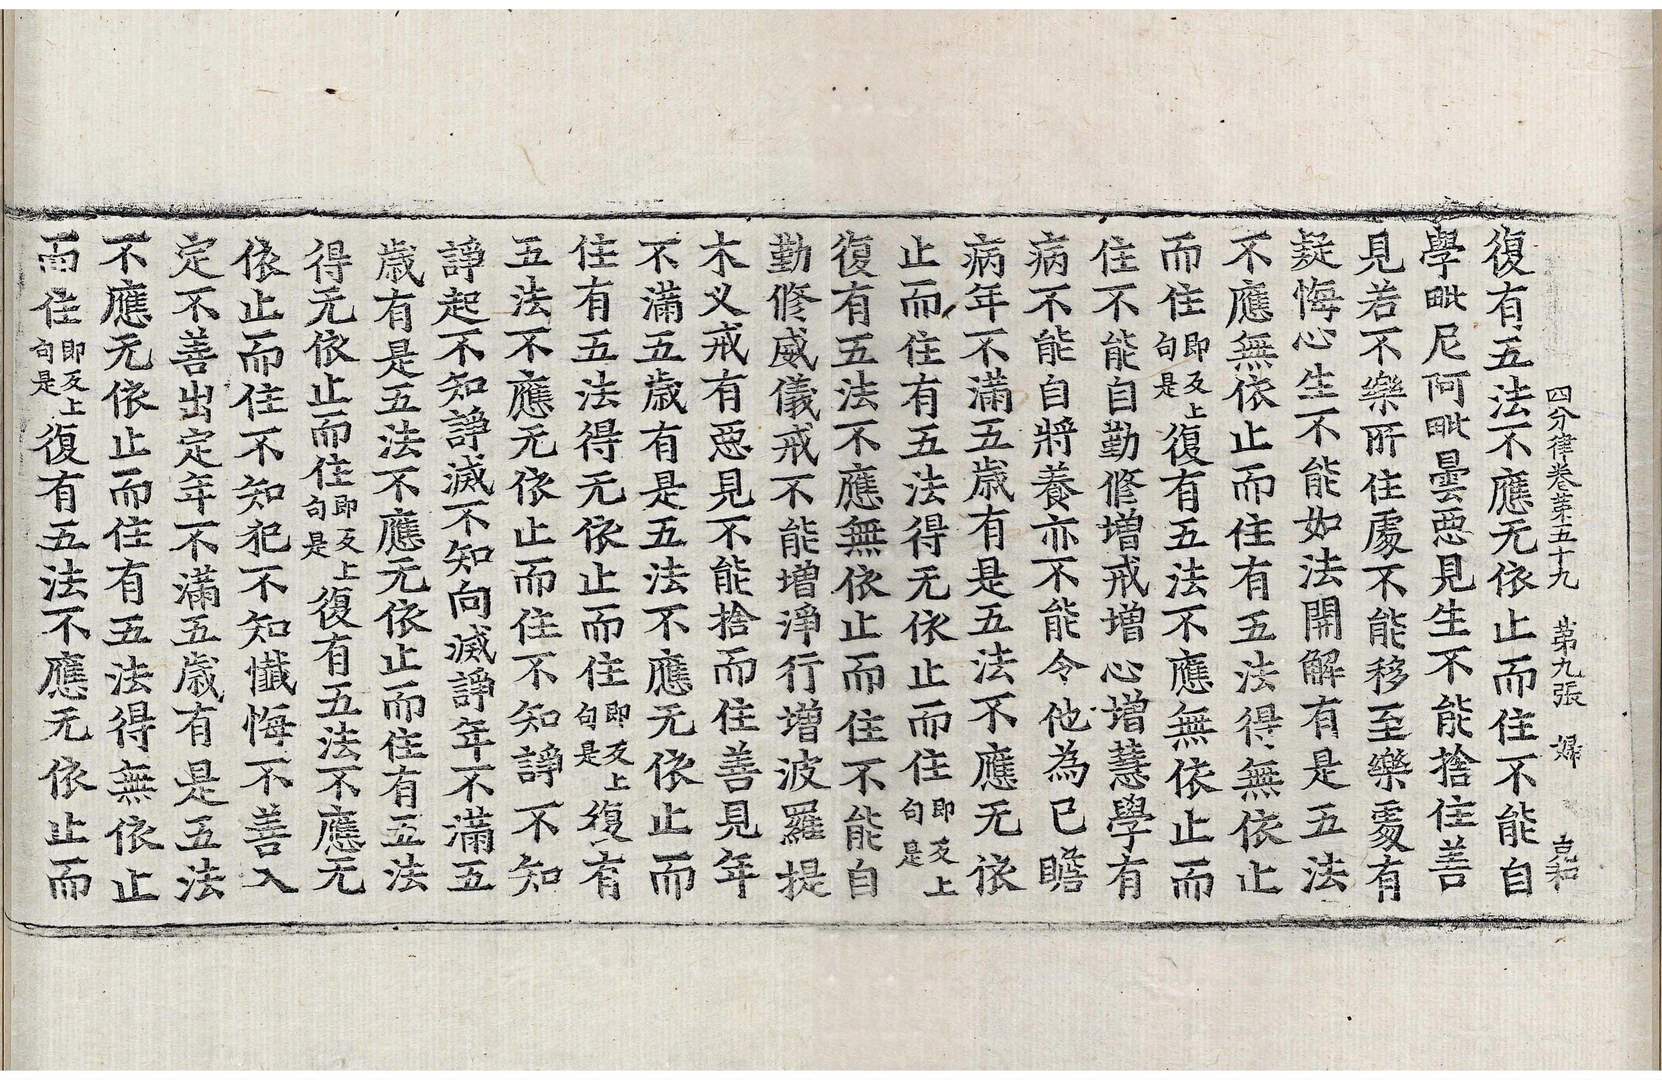 四分律卷苐五十九　苐九張　婦　克和
復有五法不應无依止而住不能自
學毗尼阿毗曇惡見生不能捨住善
見若不樂所住處不能移至樂處有
疑悔心生不能如法開解有是五法
不應無依止而住有五法得無依止
而住即反上句是復有五法不應無依止而
住不能自勤修增戒增心增慧學有
病不能自將養亦不能令他為已瞻
病年不滿五歲有是五法不應无依
止而住有五法得无依止而住即反上句是
復有五法不應無依止而住不能自
勤修威儀戒不能增淨行增波羅提
木叉戒有惡見不能捨而住善見年
不滿五歲有是五法不應无依止而
住有五法得无依止而住即反上句是復有
五法不應无依止而住不知諍不知
諍起不知諍滅不知向滅諍年不滿五
歲有是五法不應无依止而住有五法
得无依止而住即反上句是復有五法不應无
依止而住不知犯不知懺悔不善入
定不善出定年不滿五歲有是五法
不應无依止而住有五法得無依止
而住即反上句是復有五法不應无依止而